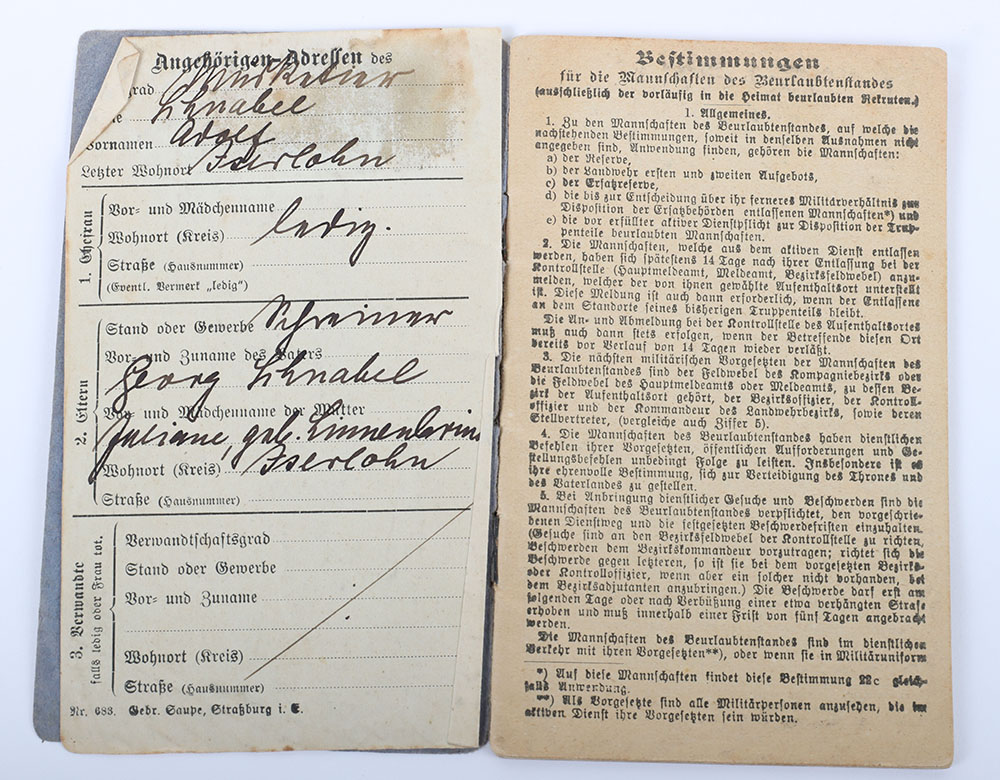 Angehörigen-Adressen des
Musketier
rad
Schnabel
e
Vornamen Adolf
Letzter Wohnort Iserlohn
1. Ehefrau
Vor- und Mädchenname
ledig.
Wohnort (Kreis)
Straße (Hausnummer)
(Eventl. Vermerk „ledig")
2. Eltern
Stand oder Gewerbe Schreiner
Vor- und Zuname des Vaters
Georg Schnabel
Vor- und Mädchenname der Mutter
Juliane, geb.
Wohnort (Kreis) Iserlohn
Straße (Hausnummer)
3. Verwandte
falls ledig oder Frau tot.
Verwandtschaftsgrad
Stand oder Gewerbe
Vor- und Zuname
Wohnort (Kreis)
Straße (Hausnummer)
Nr. 683. Gebr. Saupe, Straßburg i. E.
Bestimmungen
für die Mannschaften des Beurlaubtenstandes
(ausschließlich der vorläufig in die Heimat beurlaubten Rekruten.)
1. Allgemeines.
1. Zu den Mannschaften des Beurlaubtenstandes, auf welche die
nachstehenden Bestimmungen, soweit in denselben Ausnahmen nicht
angegeben sind, Anwendung finden, gehören die Mannschaften:
a) der Reserve,
b) der Landwehr ersten und zweiten Aufgebots,
c) der Ersatzreserve,
d) die bis zur Entscheidung über ihr ferneres Militärverhältnis zur
Disposition der Ersatzbehörden entlassenen Mannschaften*) und
e) die vor erfüllter aktiver Dienstpflicht zur Disposition der Trup-
penteile beurlaubten Mannschaften.
2. Die Mannschaften, welche aus dem aktiven Dienst entlassen
werden, haben sich spätestens 14 Tage nach ihrer Entlassung bei der
Kontrollstelle (Hauptmeldeamt, Meldeamt, Bezirksfeldwebel) anzu-
melden, welcher der von ihnen gewählte Aufenthaltsort unterstellt
ist. Diese Meldung ist auch dann erforderlich, wenn der Entlassene
an dem Standorte seines bisherigen Truppenteils bleibt.
Die An- und Abmeldung bei der Kontrollstelle des Aufenthaltsortes
muß auch dann stets erfolgen, wenn der Betreffende diesen Ort
bereits vor Verlauf von 14 Tagen wieder verläßt.
3. Die nächsten militärischen Vorgesetzten der Mannschaften des
Beurlaubtenstandes sind der Feldwebel des Kompagniebezirks oder
die Feldwebel des Hauptmeldeamts oder Meldeamts, zu dessen Be-
zirk der Aufenthaltsort gehört, der Bezirksoffizier, der Kontroll-
offizier und der Kommandeur des Landwehrbezirks, sowie deren
Stellvertreter, (vergleiche auch Ziffer 5).
4. Die Mannschaften des Beurlaubtenstandes haben dienstlichen
Befehlen ihrer Vorgesetzten, öffentlichen Aufforderungen und Ge-
stellungsbefehlen unbedingt Folge zu leisten. Insbesondere ist es
ihre ehrenvolle Bestimmung, sich zur Verteidigung des Thrones und
des Vaterlandes zu gestellen.
5. Bei Anbringung dienstlicher Gesuche und Beschwerden sind die
Mannschaften des Beurlaubtenstandes verpflichtet, den vorgeschrie-
denen Dienstweg und die festgesetzten Beschwerdefristen einzuhalten.
(Gesuche sind an den Bezirksfeldwebel der Kontrollstelle zu richten,
Beschwerden dem Bezirkskommandeur vorzutragen; richtet sich die
Beschwerde gegen letzteren, so ist sie bei dem vorgesetzten Bezirks-
oder Kontrolloffizier, wenn aber ein solcher nicht vorhanden, bei
dem Bezirksadjutanten anzubringen.) Die Beschwerde darf erst am
folgenden Tage oder nach Verbüßung einer etwa verhängten Strafe
erhoben und muß innerhalb einer Frist von fünf Tagen angebracht
werden.
Die Mannschaften des Beurlaubtenstandes sind im dienstlichen
Verkehr mit ihren Vorgesetzten**), oder wenn sie in Militäruniform
*) Auf diese Mannschaften findet diese Bestimmung 22c gleich-
falls Anwendung.
**) Als Vorgesetzte sind alle Militärpersonen anzusehen, die im
aktiven Dienst ihre Vorgesetzten sein würden.